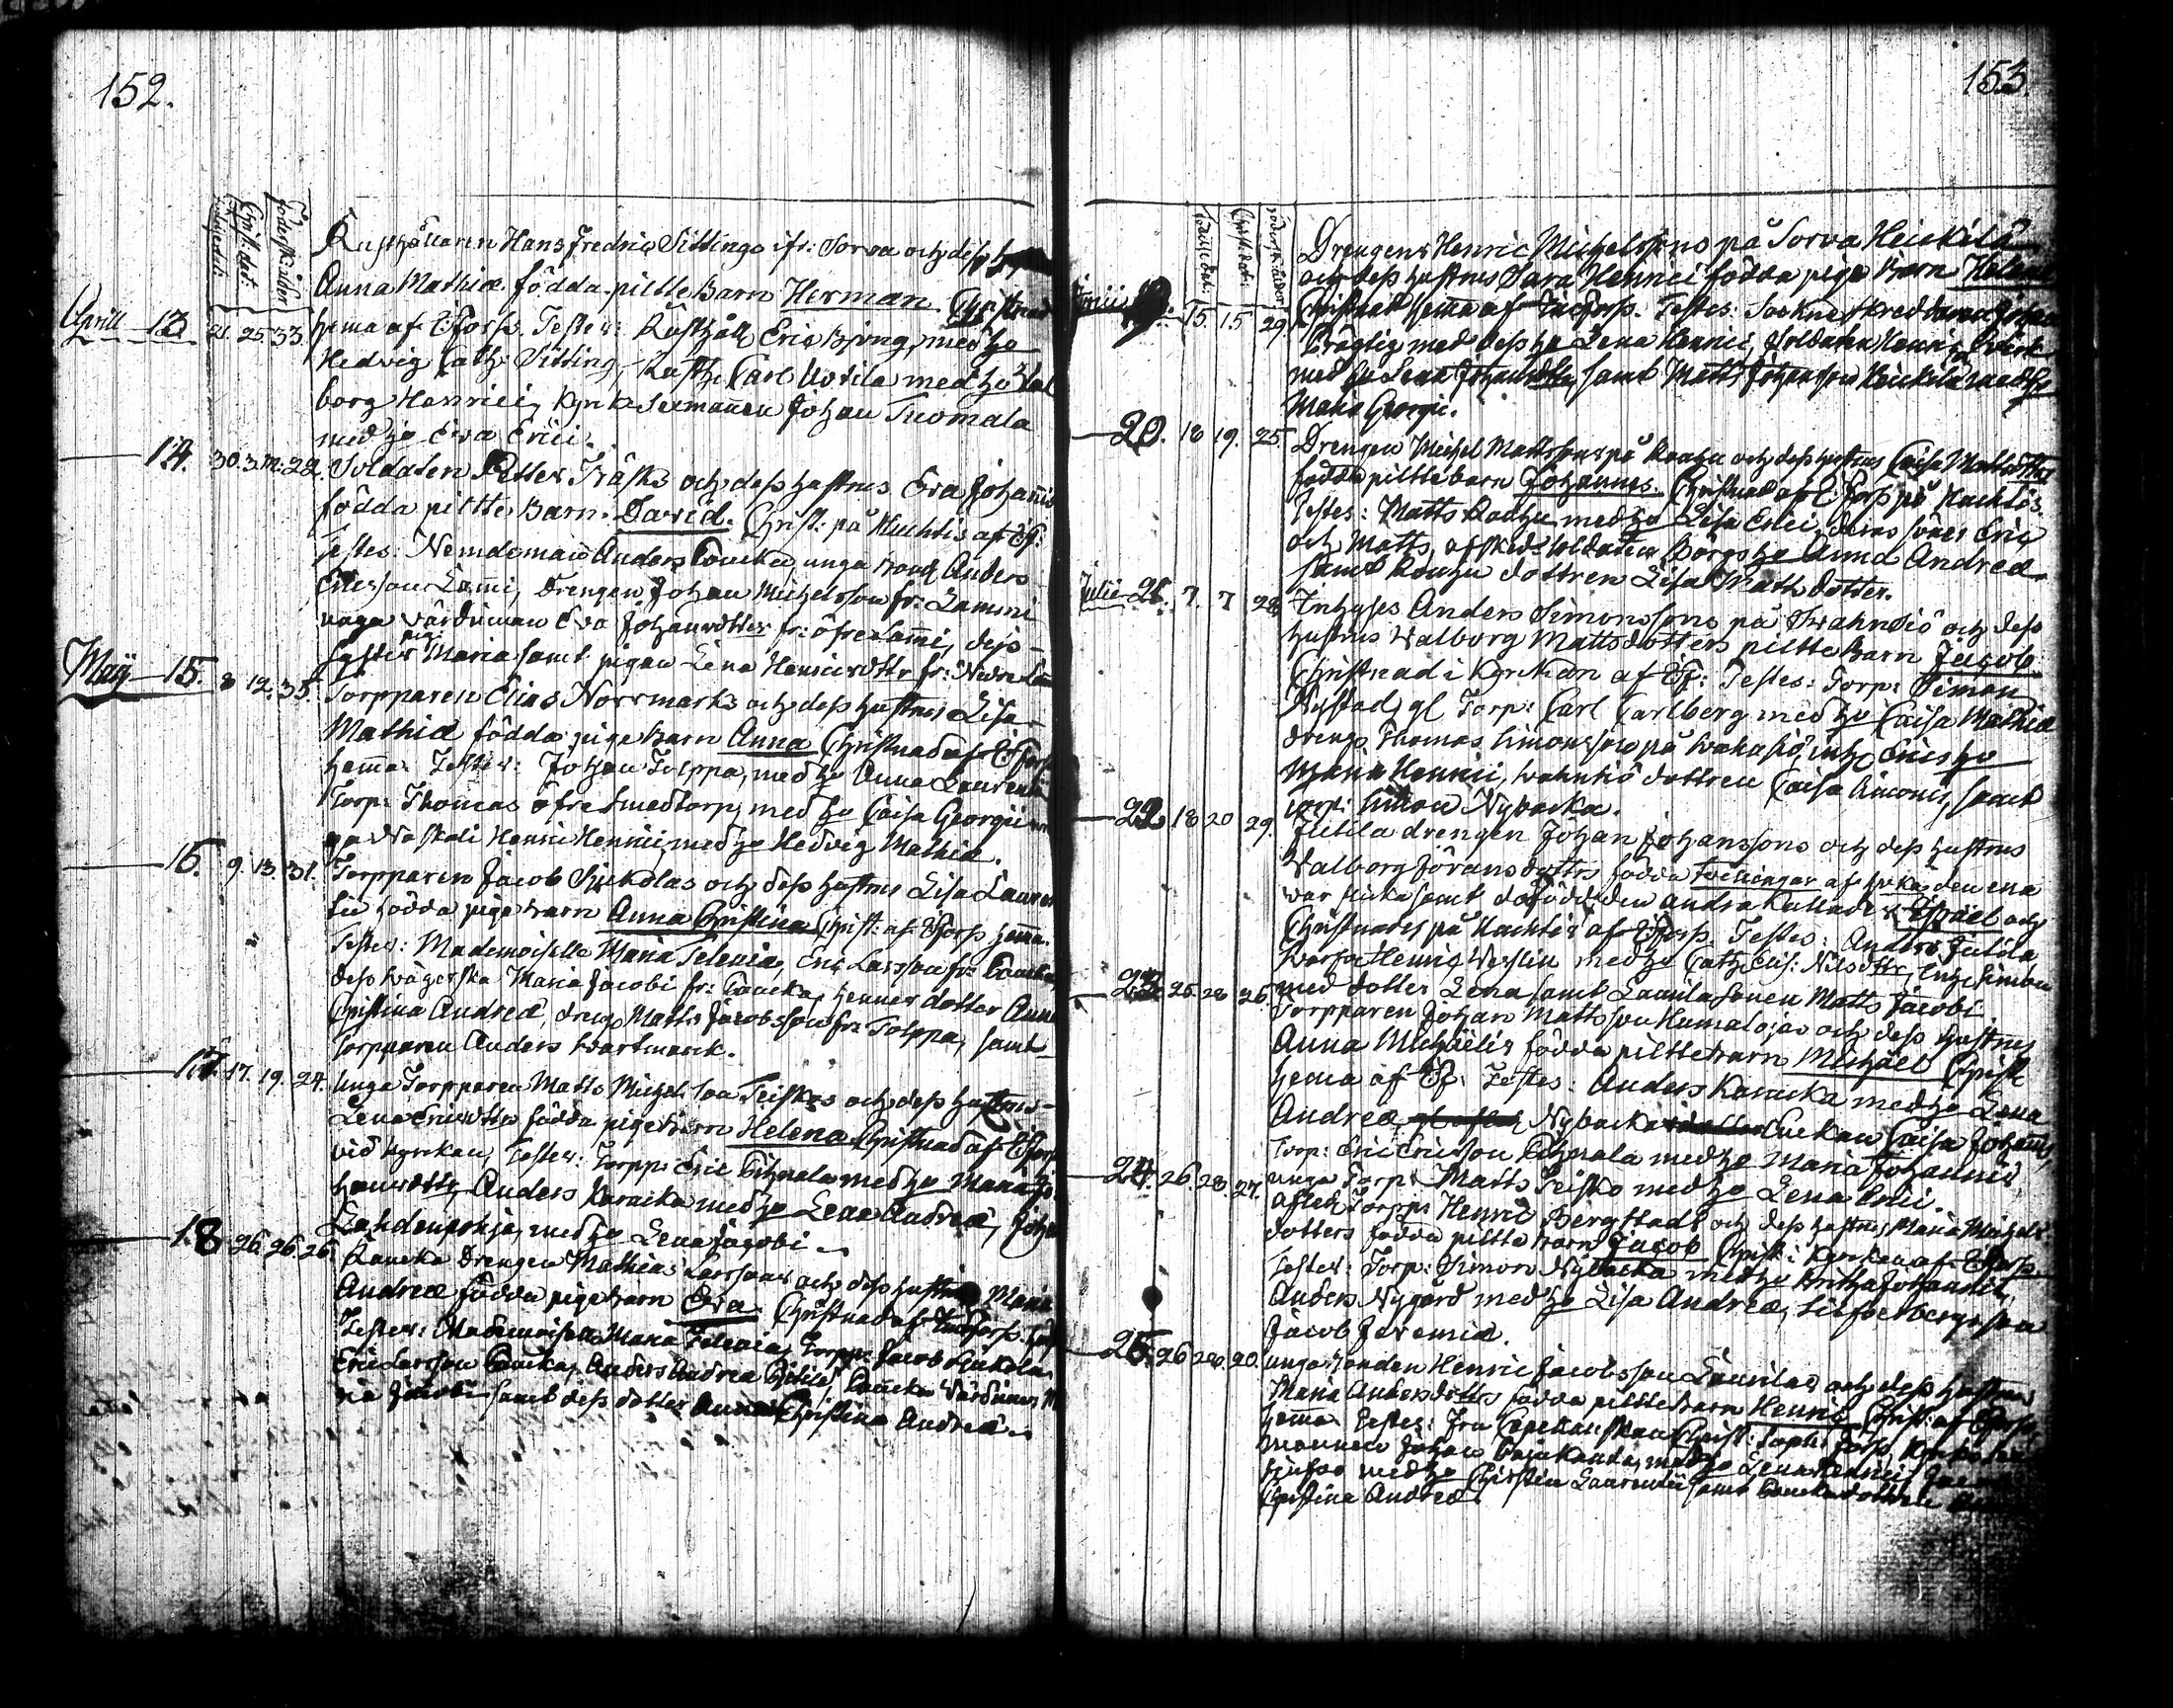 152.
Födelsedat:
Christ: dat:
Föderskålder
Rusthållaren Hans Fredric Sittings ifr: Sorva och dess h
Anna Mathiæ födda piltte Barn Herman Christnad
Aprill 13 21. 25. 33. hema af Eforss. Testes: Rusthåll Eric Bjong med ho
Hedvig Cath: Sitting, Rusth. Carl Uotila med ho Wal
borg Henrici, Kyrk Sexmannen Johan Tuomala
med ho Eva Erici.
14. 30. 3.M: 22. Soldaten Petter Träsks och dess hustrus Eva Johannis
födda piltte Barn David. Christ: på Kuchtis af Ef:
Testes: Nemdeman Anders Caucka, unga bond Anders
Ericsson Lammi, Drengen Johan Michelsson fr: Lammi
unga värdinnan Eva Johansdotter fr: öfre Lammi, dess
syster pig: Maria samt pigan Lena Henricsdottr fr: Nedre Lam
Maij 15. 8 12. 35. Torpparen Elias Norrmarks och dess hustrus Lisa
Mathiæ födda pige barn Anna Christnad af Eforss
hema. Testes: Johan Tolppa, med ho Anna Laurentii
Torp: Thomas öfre Smedtorp, med ho Caisa Georgii
Henric Henrici, med ho Hedvig Mathiæ.
16. 9. 13. 31. Torpparen Jacob Sjukolas och dess hustrus Lisa Lauren
tii födda pige barn Anna Christina Christ: af Eforss hema.
Testes: Mademoiselle Maria Selenia, Eric Larsson fr: Caucka,
dess swägerska Maria Jacobi fr: Caucka, hennes dotter Anna
Christina Andreæ, dreng Matts Jacobsson fr: Tolppa, samt
torpparen Anders Wartmarck.
17. 17. 19. 24. Unga Torpparen Matts Michelsson Teiskos och dess hustrus
Lena Ericsdotter födda pige barn Helena Christnad af Eforss
vid kyrckan, Testes: Torpp: Eric Pihnala med ho Maria Jo
hansdottr, Anders Karucka med ho Lena Andreæ, Johan
Lahdenpohja, med ho Lena Jacobi.
18 26. 26. 26. Raucka Drengen Mathias Larssons och dess hustrus Maria
Andreæ födda pige barn Eva Christnad af
Testes: Mademoiselle Maria Selenia, Torpp: Jacob Sjukola
Eric Larsson Caucka, Anders Andreæ Caucka Värdinnan M
ria Jacobi samt dess dotter Anna Christina Andreæ.
153.
Födelse dat:
Christ: dat:
Föderskålder
Drengens Henric Michelssons på Sorva Heickilä
och dess hustrus Sara Henrici födda pige barn Helena
Junii 19. 15. 15 29. Christnad hema af Eforss. Testes: Sockneskreddaren Johan
Brägtig med dess ho Lena Henrici, Soldaten Henric
med ho Lena Johansdotter, samt Matts Johansson Heickilä med ho
Maria Georgii.
20. 18 19. 25. Drengen Michel Mattssons på Rauhu och dess hustrus Caisa Mattsdotter
födda piltte barn Johannes. Christnad af Eforss på Kuchtis.
Testes: Matts Rauhu med ho Lisa Erici, deras söner Eric
och Matts, afsked: soldaten Borgs ho Anna Andreæ
samt Rauhu dottren Lisa Mattsdotter.
Julii 21. 7. 7 28 Inhyses Anders Simonssons på Wahnsiö och dess
hustrus Walborg Mattsdotters piltte Barn Jacob
Christnad i kyrckan af Ef: Testes: Torp: Simon
Nystad, gl Torp: Carl Carlberg med ho Caisa Mathiæ
dreng Thomas Simonsson på Wahnsiö, inh: Erics ho
Maria Henrici, Wahnsiö dottren Caisa Simonis, samt
torp: Simon Nybacka.
22 18 20 29. Jutila drengen Johan Johanssons och dess hustrus
Walborg Jöransdotters födda twillingar af hvka den ena
war flicka samt dödfödd den andra kallades Israel och
Christnades på Kuchtis af Eforss. Testes: Anders Jutila
Henric Weslin med ho Cath: Lis: Nilsdottr, Inh: Simon
med dotter Lena samt Launila sonen Matts Jacobi
23 25. 28 26. Torpparen Johan Mattsson Humalojas och dess hustrus
Anna Michaëlis födda piltte barn Michaël Christ
hema af Ef: Testes: Anders Karucka med ho Lena
Andreæ, Nybacka Enckan Caisa Johannis,
Torp: Eric Ericsson Pihnala med ho Maria Johannis
unga Torp: Matts Teisko med ho Lena Erici.
24. 26. 28. 27. afsked: Torpp: Henric Bergstadt och dess hustrus Maria Michels
dotters födda piltte barn Jacob Christ: i kyrckan af Eforss
Testes: Torp: Simon Nybacka med ho Britha Johannis,
Anders Nygård med ho Lisa Andreæ,
Jacob Jeremiæ.
25. 26 28. 20. unga bonden Henric Jacobsson Launilas och dess hustrus
Maria Andersdotters födda piltte barn Henric Christ: af Eforss
hema. Testes: Fru Capellanskan Christ: Soph: Forss, Kyrko sex
mannen Johan med ho Lena Henrici,
med ho Christin Laurentii samt Caucka dottren Anna
Christina Andreæ.